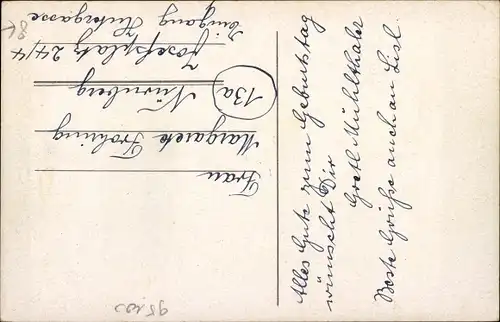 Alles Gute zum Geburtstag
wünscht Dir
Gretl Mühlthaler
Beste Grüße auch an Lisl.
Frau
Margarete Frohring
13a Nürnberg
Josefsplatz 24/4
Eingang Hutergasse
95100